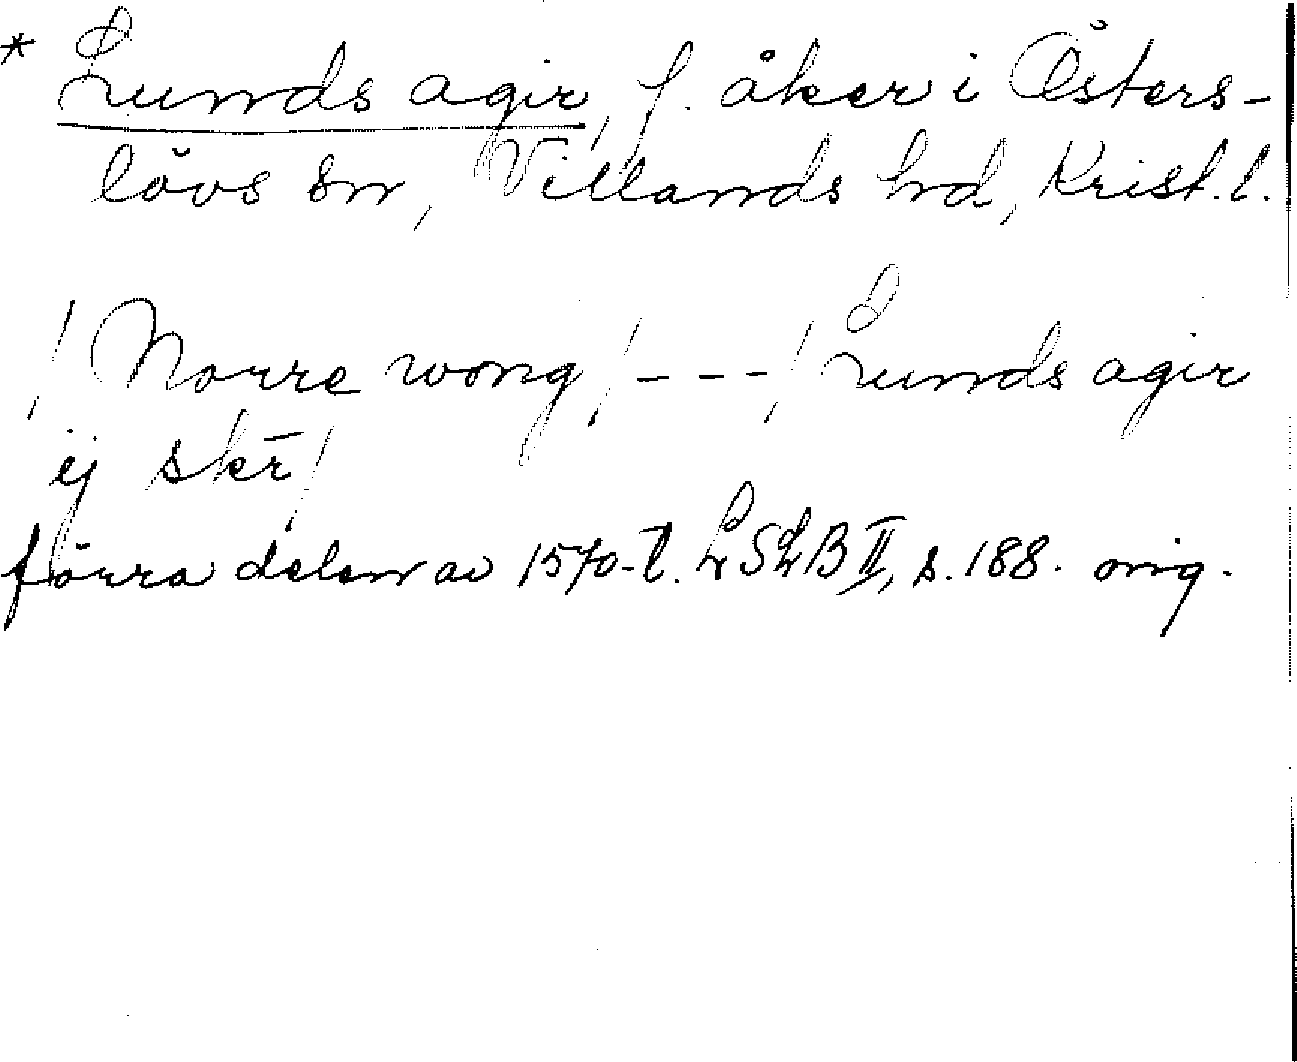 * Lunds agir, f. åker i Östers-
lövs sn, Villands hd, Krist. l.
/ Norre wong / - - - / Lunds agir
ej skr̄ /
förra delen av 1570-t. LSLB II, s. 188. orig.